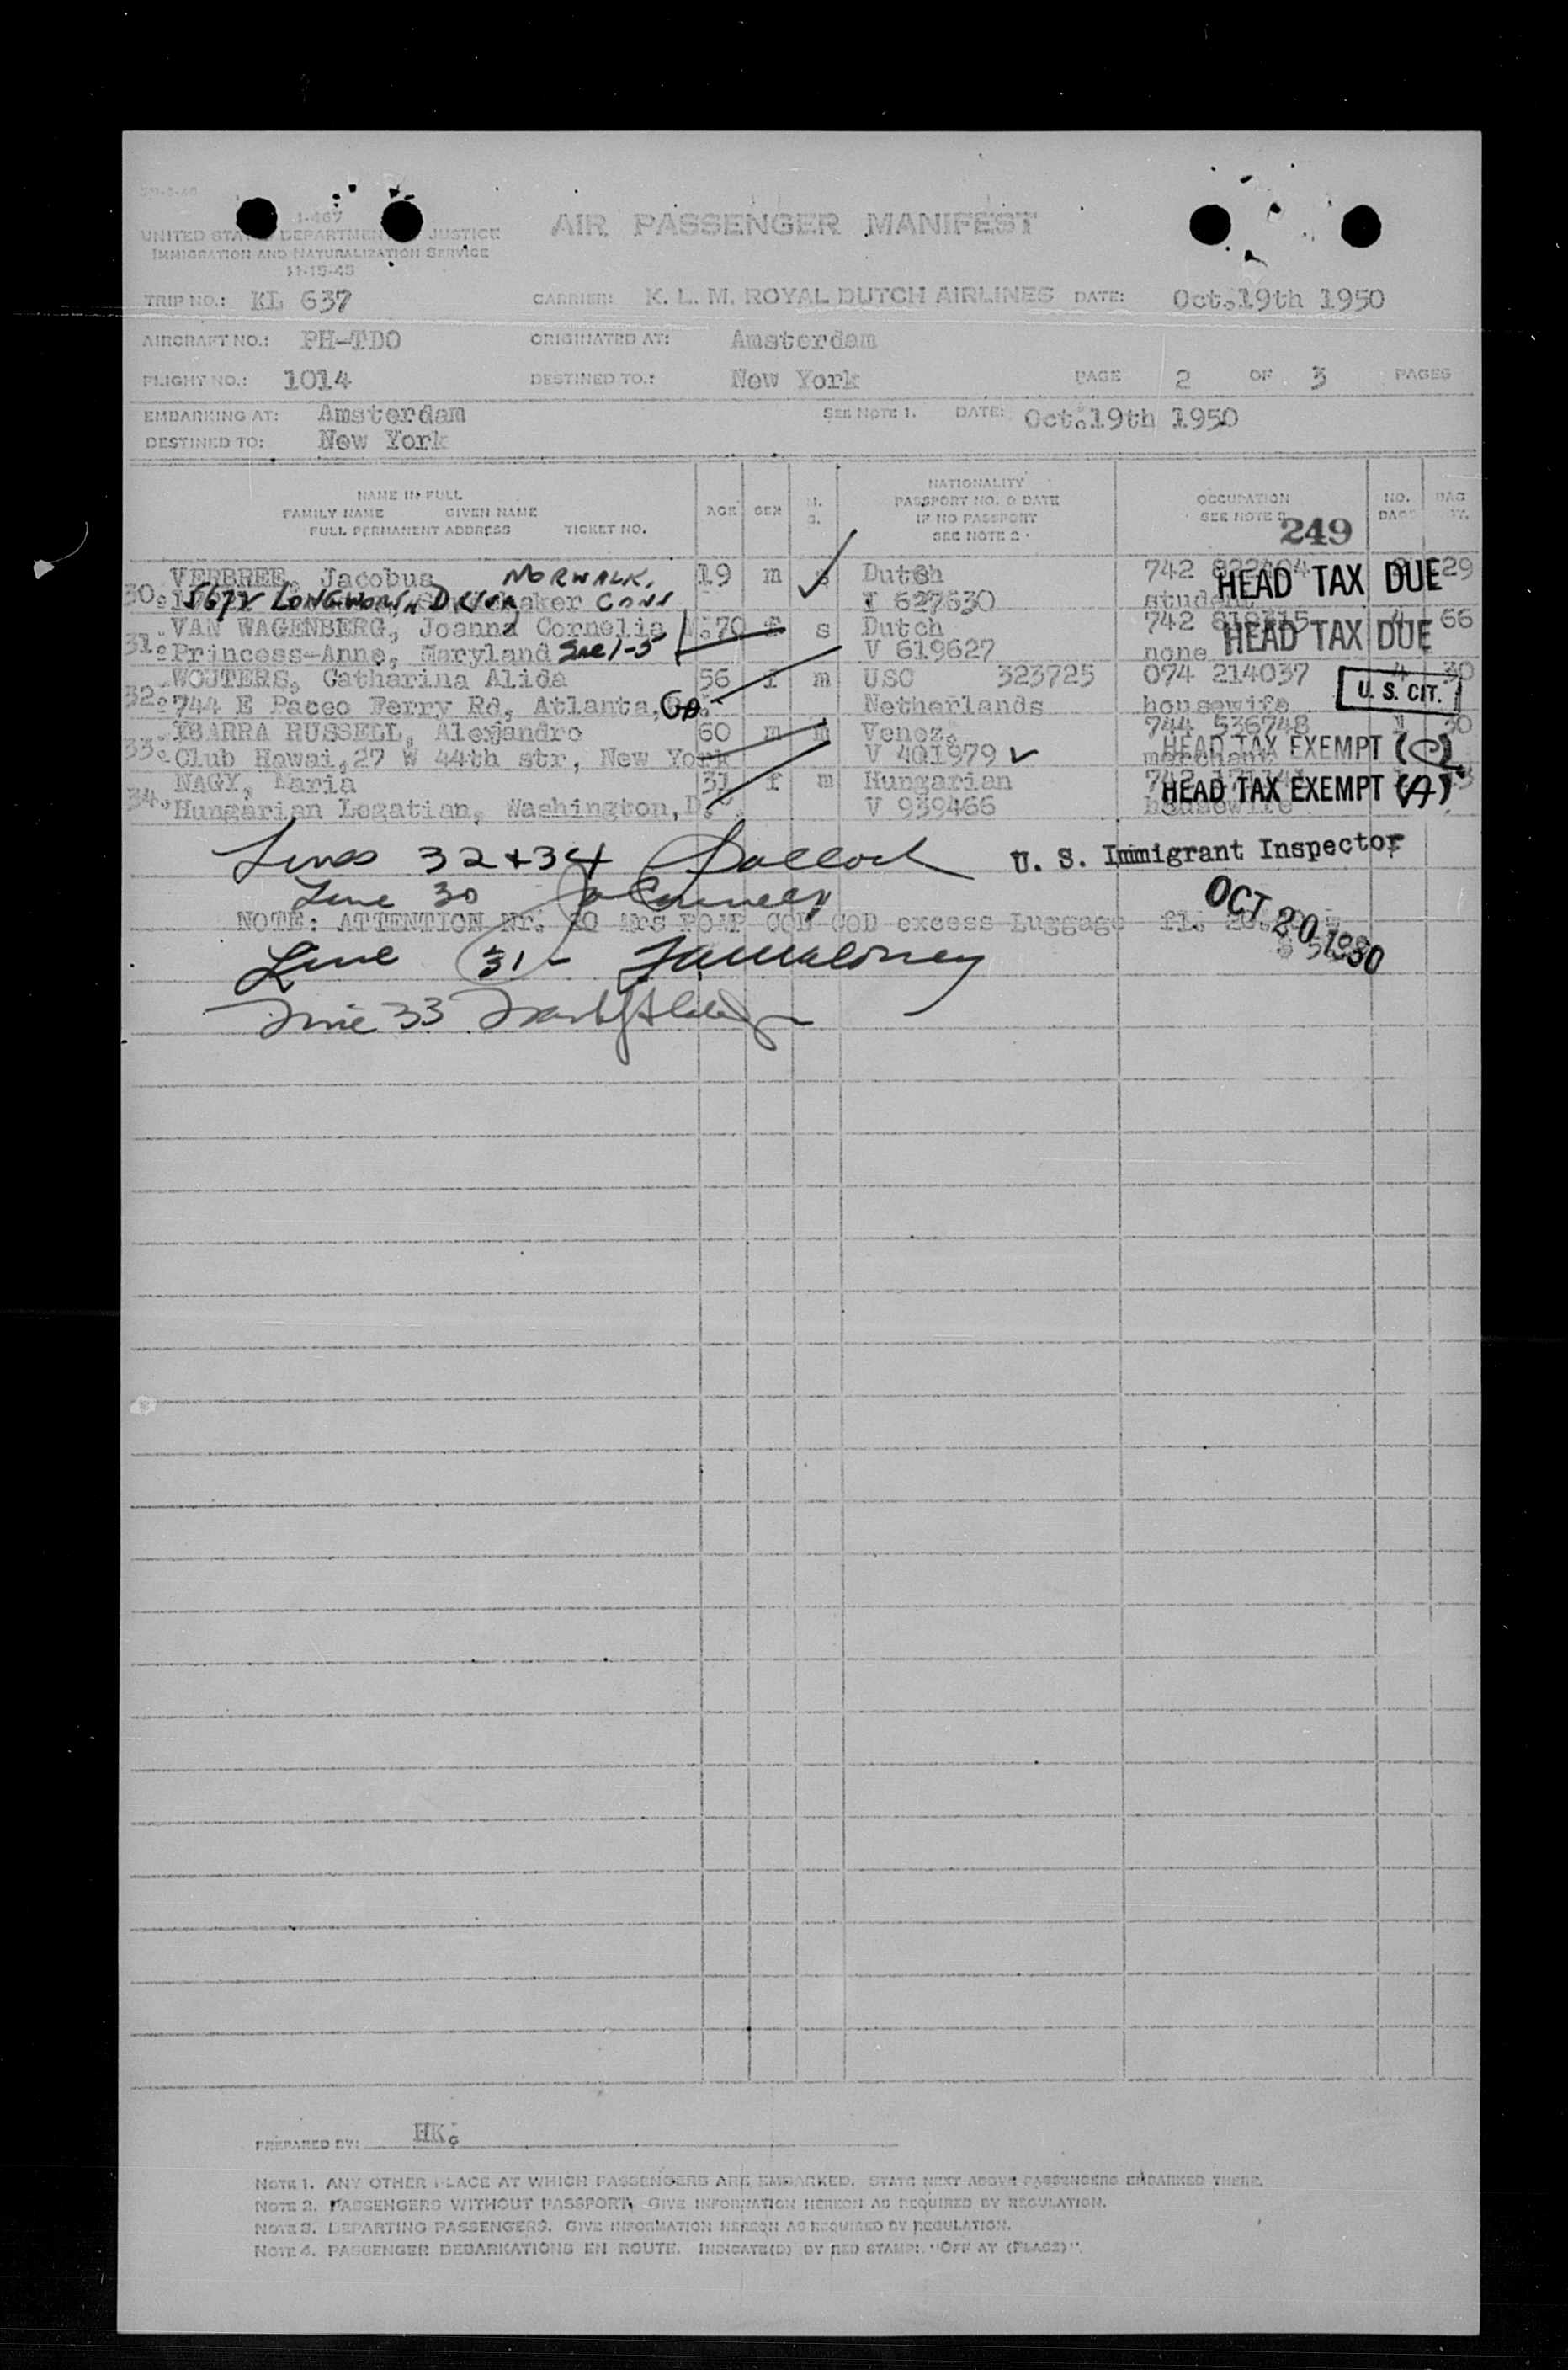 I-467
UNITED STATES DEPARTMENT JUSTICE
IMMIGRATION AND NATURALIZATION SERVICE
11-15-45
AIR PASSENGER MANIFEST
TRIP NO.: KL 637 CARRIER: K. L. M. ROYAL DUTCH AIRLINES DATE: Oct.19th 1950
AIRCRAFT NO.: PH-TDO ORIGINATED AT: Amsterdam
FLIGHT NO.: 1014 DESTINED TO.: New York PAGE 2 OF 3 PAGES
EMBARKING AT: Amsterdam SEE NOTE 1. DATE: Oct.19th 1950
DESTINED TO: New York
NAME IN FULL
FAMILY NAME GIVEN NAME
FULL PERMANENT ADDRESS TICKET NO.
AGE SEX
NATIONALITY
PASSPORT NO. & DATE
IF NO PASSPORT
SEE NOTE 2
OCCUPATION
SEE NOTE
249
VERBREE, Jacobus NORWALK, 19 m s Dutch 742 29
30. CONN I 627630 student HEAD TAX DUE
VAN WAGENBERG, Joanna Cornelia 70 f s Dutch 742 66
31. Princess-Anne, Maryland V 619627 none HEAD TAX DUE
WOUTERS, Catharina Alida 56 f m USC 323725 074 214037 4 30
32. 744 E Paceo Ferry Rd, Atlanta, Ga. Netherlands housewife U. S. CIT.
YBARRA RUSSELL, Alejandro 60 m m Venez. 744 536748 1 30
33. Club Hawai, 27 W 44th str, New York V 401979 merchant HEAD TAX EXEMPT (C)
NAGY, Maria 31 f m Hungarian 742
34. Hungarian Legatian, Washington, D. V 939466 housewife HEAD TAX EXEMPT (A)
Lines 32 + 34 U. S. Immigrant Inspector
Line 30
NOTE: ATTENTION Nr. Mrs excess Luggage fl.
OCT 20 1950
Line 31 -
Line 33
PREPARED BY: HK.
NOTE 1. ANY OTHER PLACE AT WHICH PASSENGERS ARE EMBARKED. STATE NEXT ABOVE PASSENGERS EMBARKED THERE.
NOTE 2. PASSENGERS WITHOUT PASSPORT, GIVE INFORMATION HEREON AS REQUIRED BY REGULATION.
NOTE 3. DEPARTING PASSENGERS. GIVE INFORMATION HEREON AS REQUIRED BY REGULATION.
NOTE 4. PASSENGER DEBARKATIONS EN ROUTE. INDICATE(D) BY RED STAMP: "OFF AT (PLACE)".